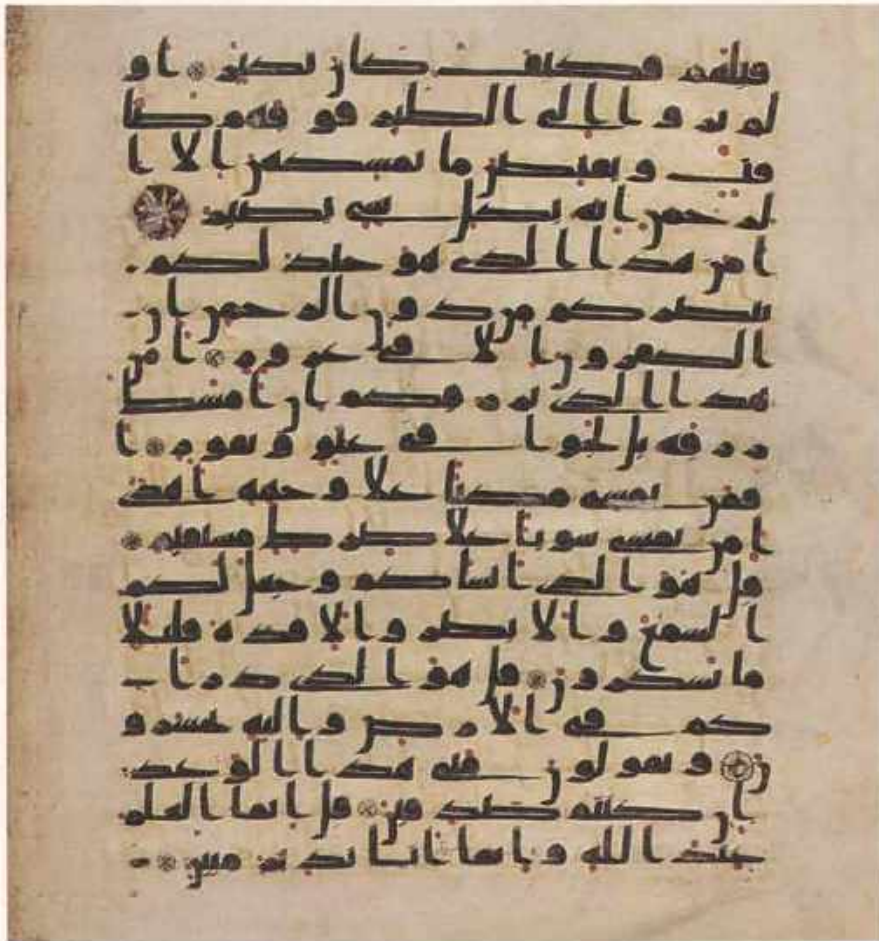 قبلهم فكيف كان نكير او
لم يروا الى الطير فوقهم صفا
فت ويقبضن ما يمسكهن الا ا
لرحمن انه بكل شى بصير
امن هذا الذى هو جند لكم
ينصركم من دون الرحمن ان
الكفرون الا فى غرور امن
هذا الذى يرزقكم ان امسك
رزقه بل لجوا فى عتو ونفور ا
فمن يمشى مكبا على وجهه اهدى
امن يمشى سويا على صرط مستقيم
قل هو الذى انشاكم وجعل لكم
السمع والابصر والافدة قليلا
ما تشكرون قل هو الذى ذرا
كم فى الارض واليه تحشرو
ن ويقولون متى هذا الوعد
ان كنتم صدقين قل انما العلم
عند الله وانما انا نذير مبين